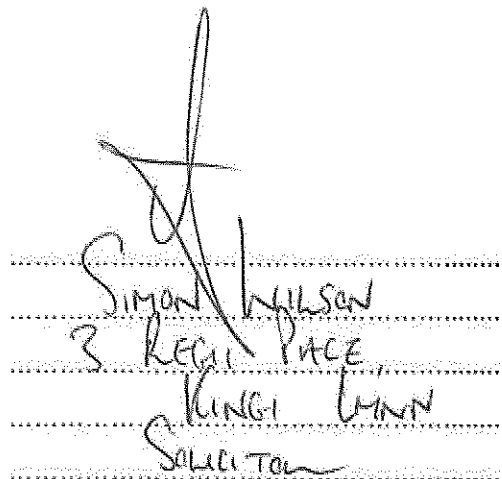 SIMON WILSON
3 REGIS PLACE,
KINGS LYNN
SOLICITOR